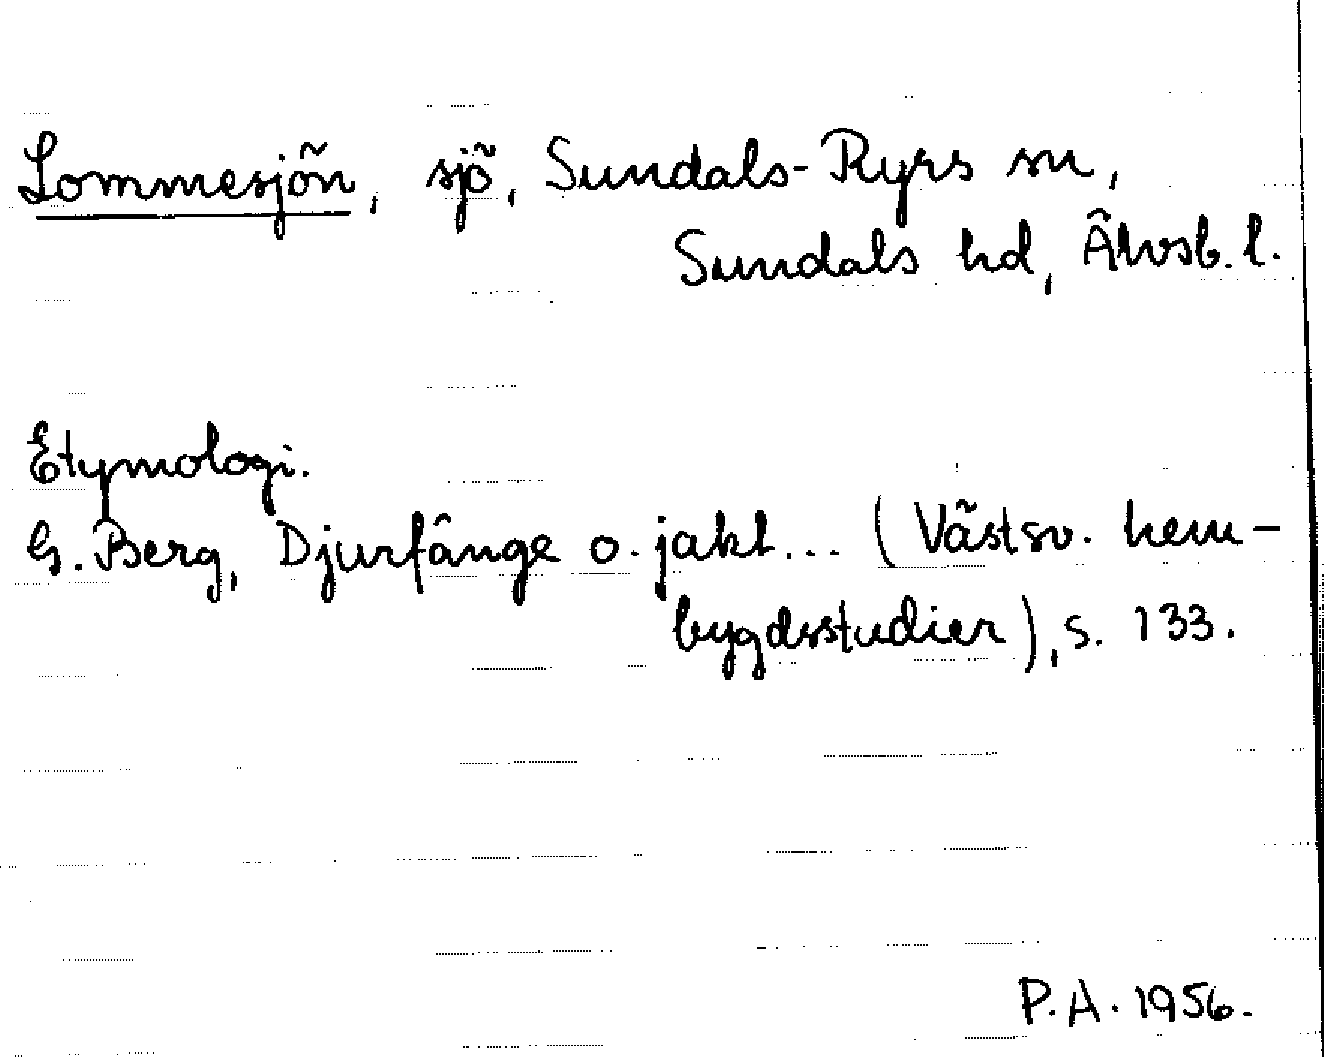 Lommesjön, sjö, Sundals-Ryrs sn,
Sundals hd, Älvsb. l.
Etymologi.
G. Berg, Djurfånge o. jakt... (Västsv. hem-
bygdsstudier), s. 133.
P.A. 1956.